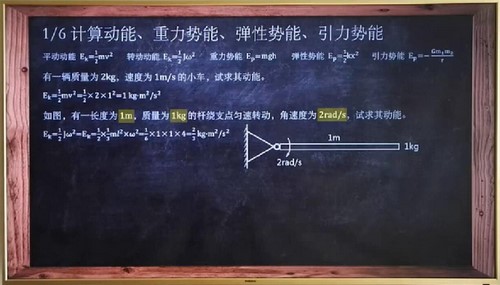 1/6 计算动能、重力势能、弹性势能、引力势能
平动动能 Eₖ=½mv² 转动动能 Eₖ=½Jω² 重力势能 Eₚ=mgh 弹性势能 Eₚ=½kx² 引力势能 Eₚ=-Gm₁m₂/r
有一辆质量为2kg，速度为1m/s的小车，试求其动能。
Eₖ=½mv²=½×2×1²=1 kg·m²/s²
如图，有一长度为1m，质量为1kg的杆绕支点匀速转动，角速度为2rad/s，试求其动能。
Eₖ=½Jω²=Eₖ=½×⅓ml²×ω²=⅙×1×1×4=⅔ kg·m²/s²
1m
1kg
2rad/s